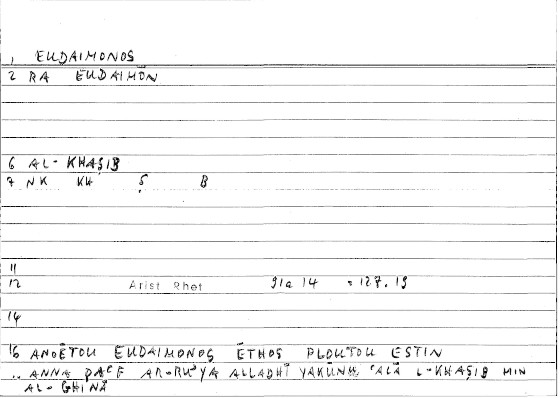 1 EUDAIMONOS
2 RA EUDAIMŌN
6 AL-KHAṢIB
7 NK KH Ṣ B
11
12 Arist Rhet 91a 14 = 127.19
14
16 ANOĒTOU EUDAIMONOS ĒTHOS PLOUTOU ESTIN
.. ANNA ḌAʿF AR-RUʾYA ALLADHĪ YAKŪNU ʿALĀ L-KHAṢIB MIN
AL-GHINĀ